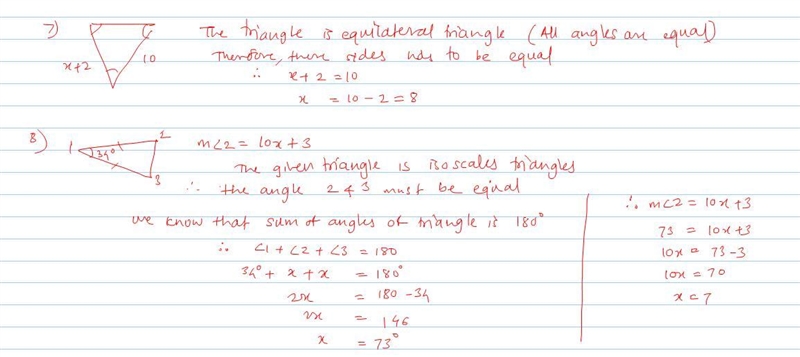 7) The triangle is equilateral triangle (All angles are equal)
x+2 10 Therefore, there sides nds to be equal
∴ x+2 = 10
x = 10-2 = 8
8) 1 2 3 34° m∠2 = 10x+3
The given triangle is isoscales triangles
∴ the angle 2 & 3 must be equal
we know that sum of angles of triangle is 180°
∴ ∠1 + ∠2 + ∠3 = 180
34° + x + x = 180°
2x = 180-34
2x = 146
x = 73°
∴ m∠2 = 10x+3
73 = 10x+3
10x = 73-3
10x = 70
x = 7